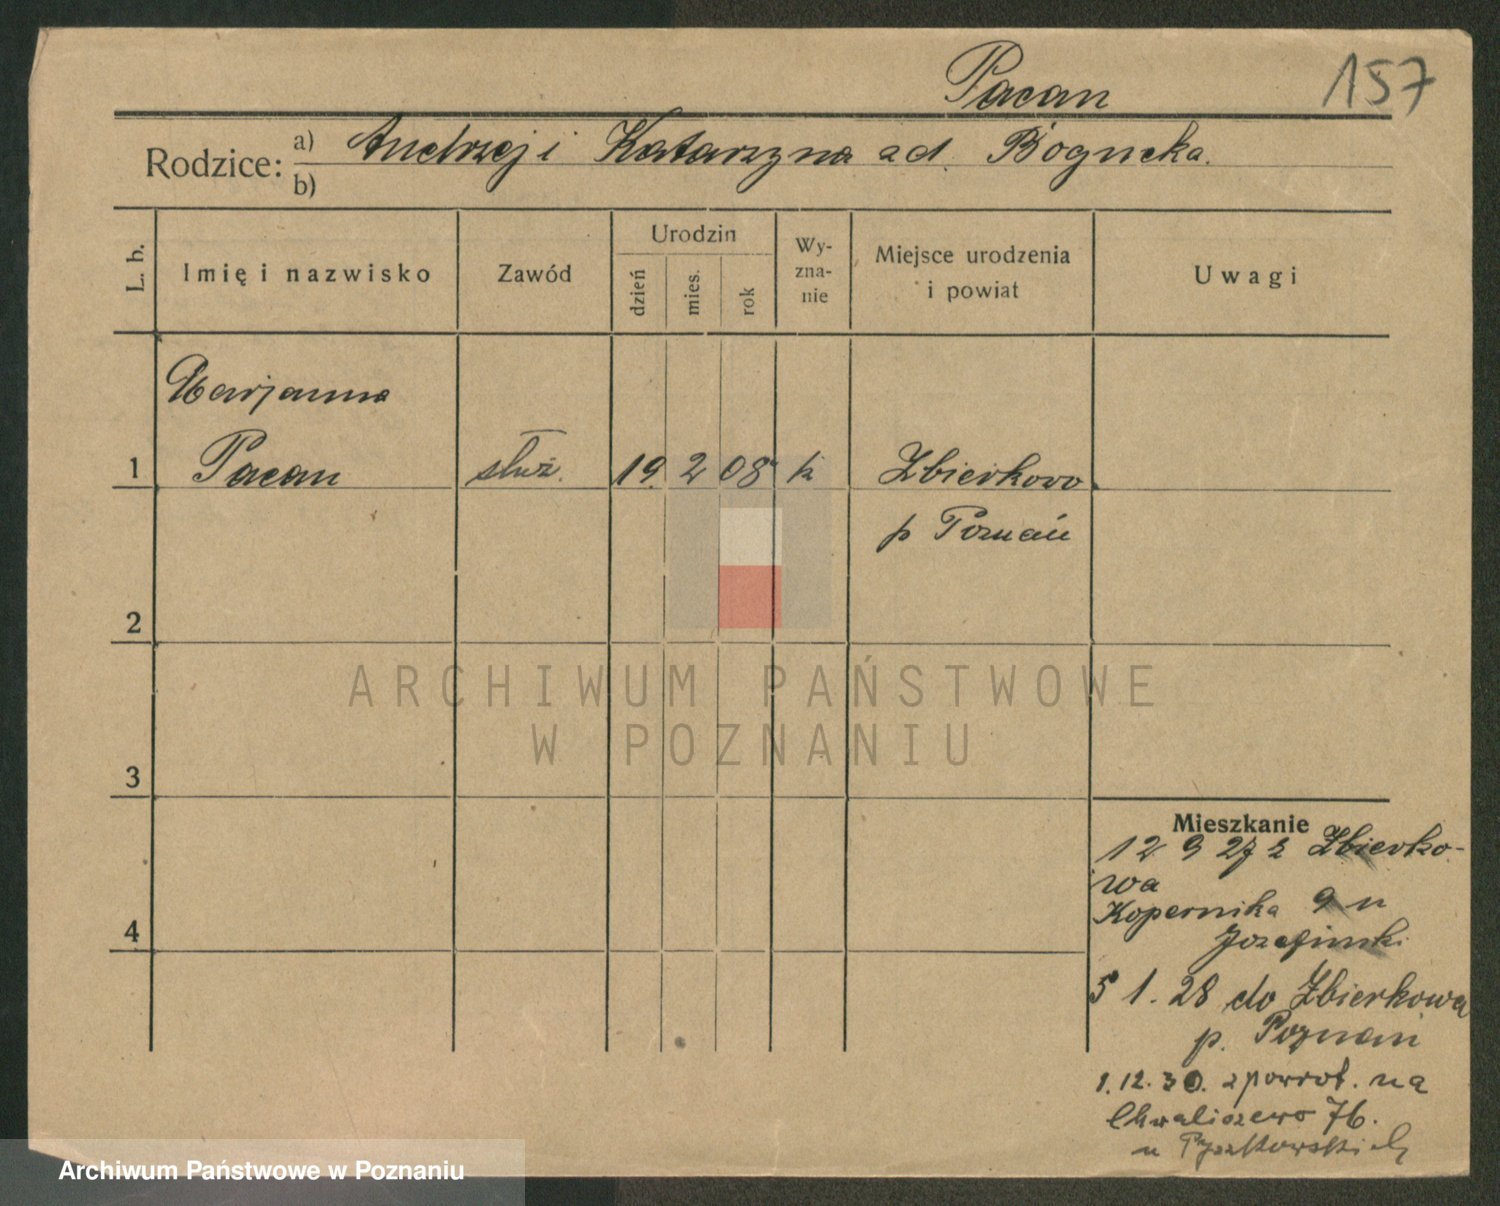 Pacan 157
Rodzice: a) Andrzej i Katarzyna zd. Bogucka.
b)
L. b. Imię i nazwisko Zawód Urodzin Wy-zna-nie Miejsce urodzenia i powiat Uwagi
dzień mies. rok
Marjanna
1 Pacan służ. 19. 2 08 k Zbierkowo
p Poznań
2
ARCHIWUM PAŃSTWOWE
W POZNANIU
3
Mieszkanie
12 9 27 z Zbierko-
wa
Kopernika 9 u
4
Józefinski
5 1. 28 do Zbierkowa
p. Poznań
1. 12. 30. zpowrot. na
Chwaliszewo 76.
u
Archiwum Państwowe w Poznaniu